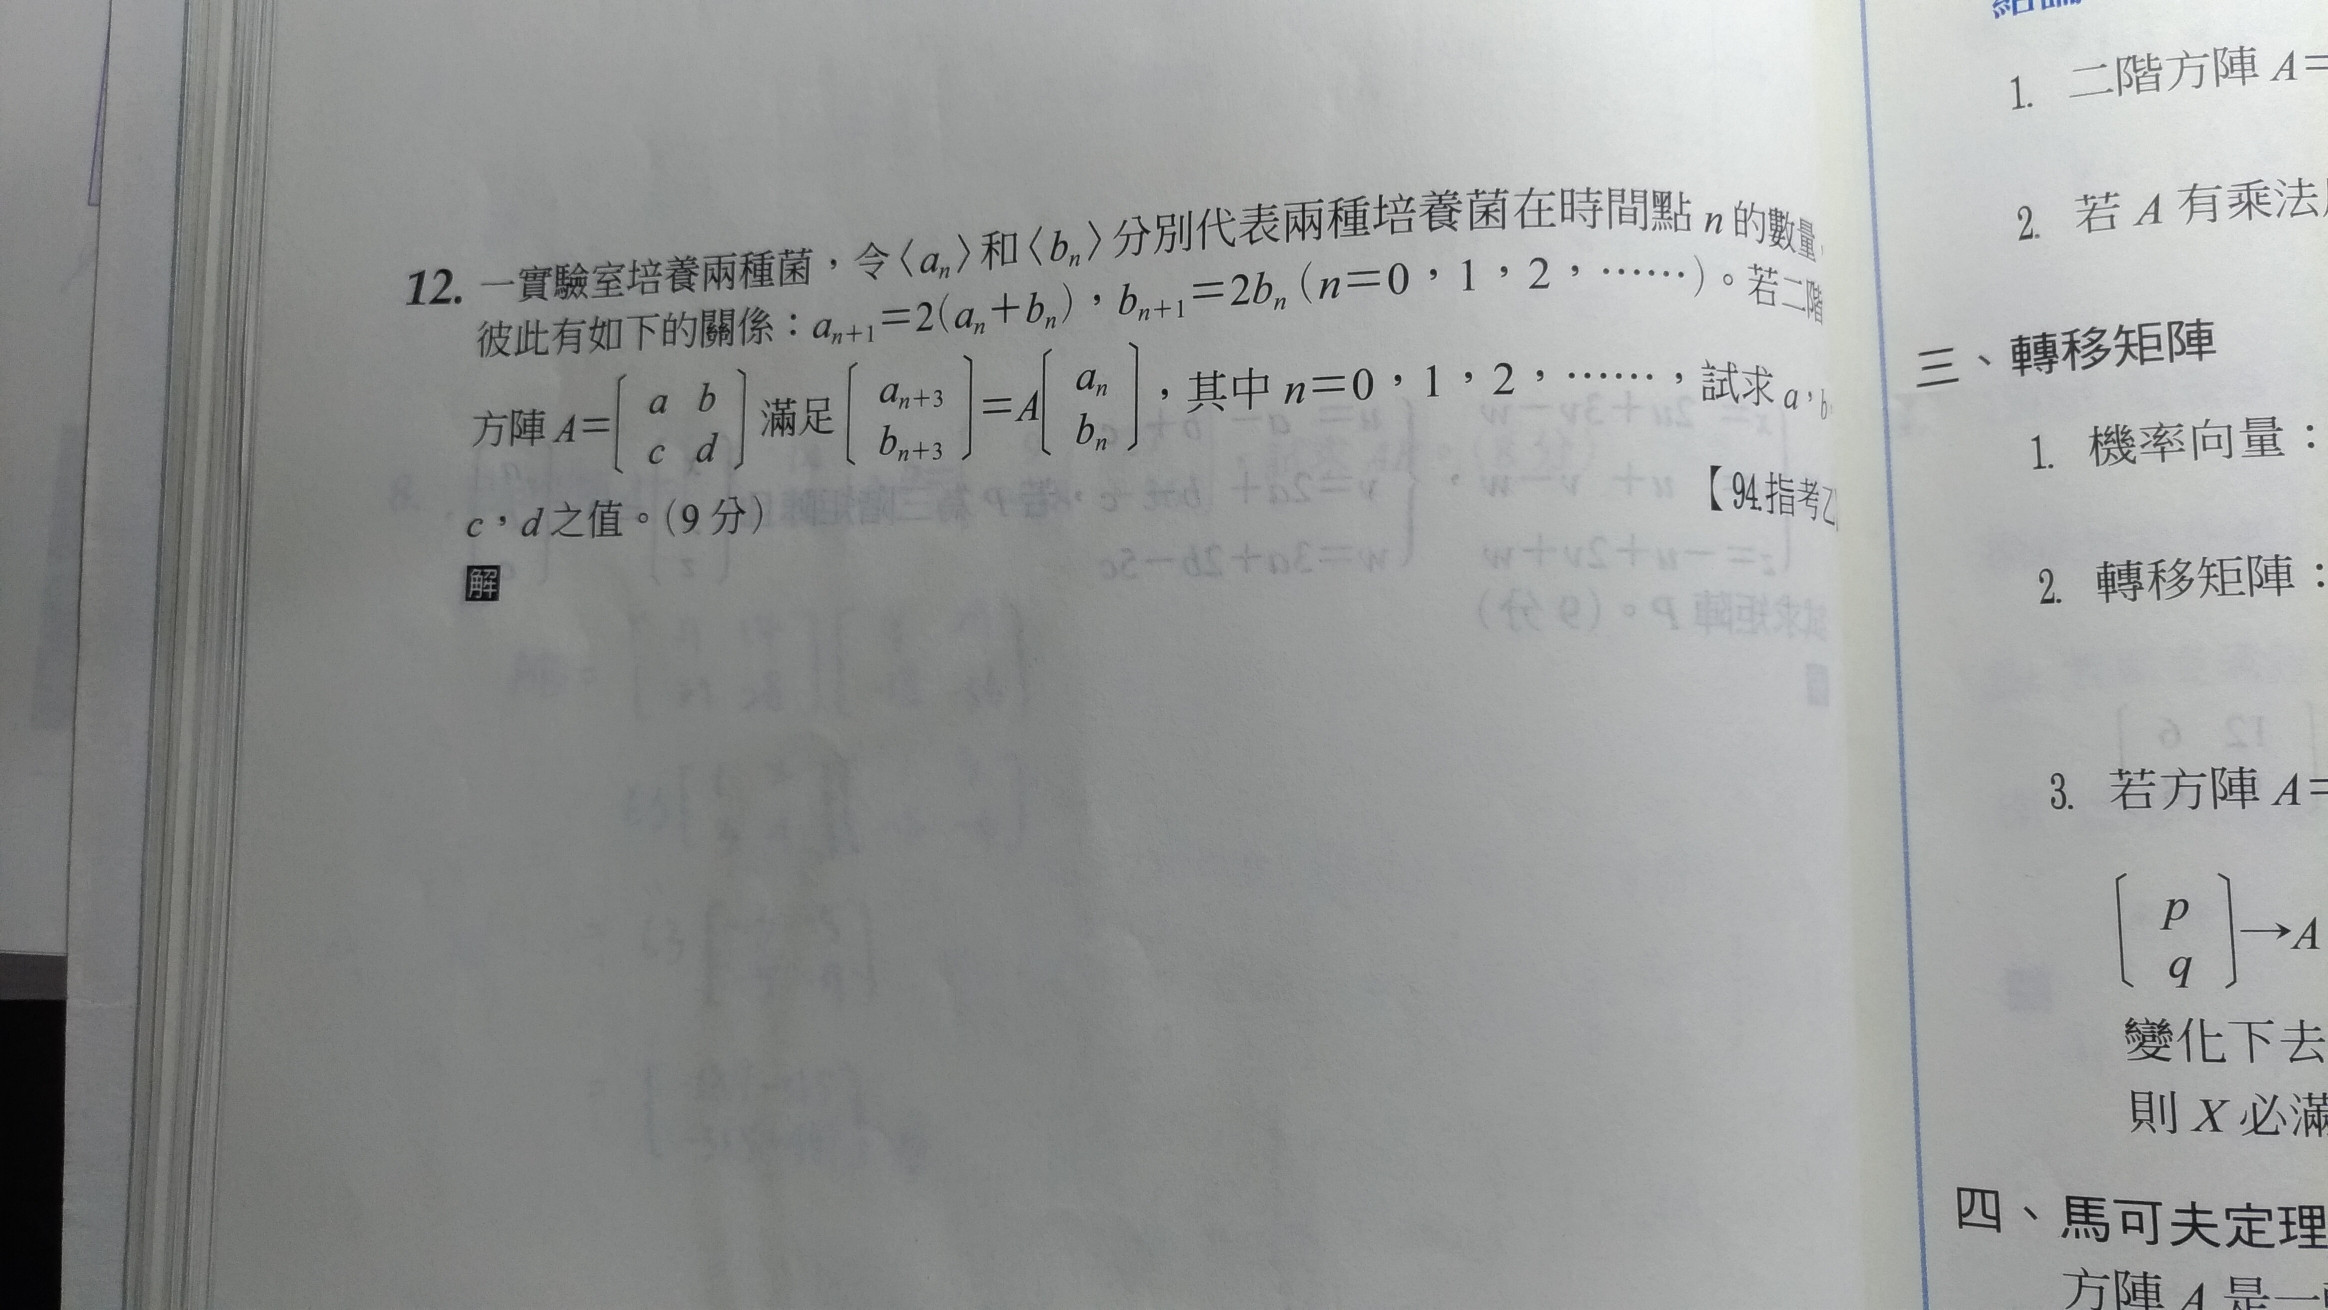 12. 一實驗室培養兩種菌，令〈aₙ〉和〈bₙ〉分別代表兩種培養菌在時間點 n 的數量，
彼此有如下的關係：aₙ₊₁=2(aₙ+bₙ)，bₙ₊₁=2bₙ (n=0，1，2，……)。若二階
方陣 A=[a b c d] 滿足 [aₙ₊₃ bₙ₊₃]=A[aₙ bₙ]，其中 n=0，1，2，……，試求 a，b
c，d 之值。(9 分)
【94.指考乙
解
結論
1. 二階方陣 A=
2. 若 A 有乘法
三、轉移矩陣
1. 機率向量：
2. 轉移矩陣：
3. 若方陣 A=
[p q]→A
變化下去
則 X 必滿
四、馬可夫定理
方陣 A 是一